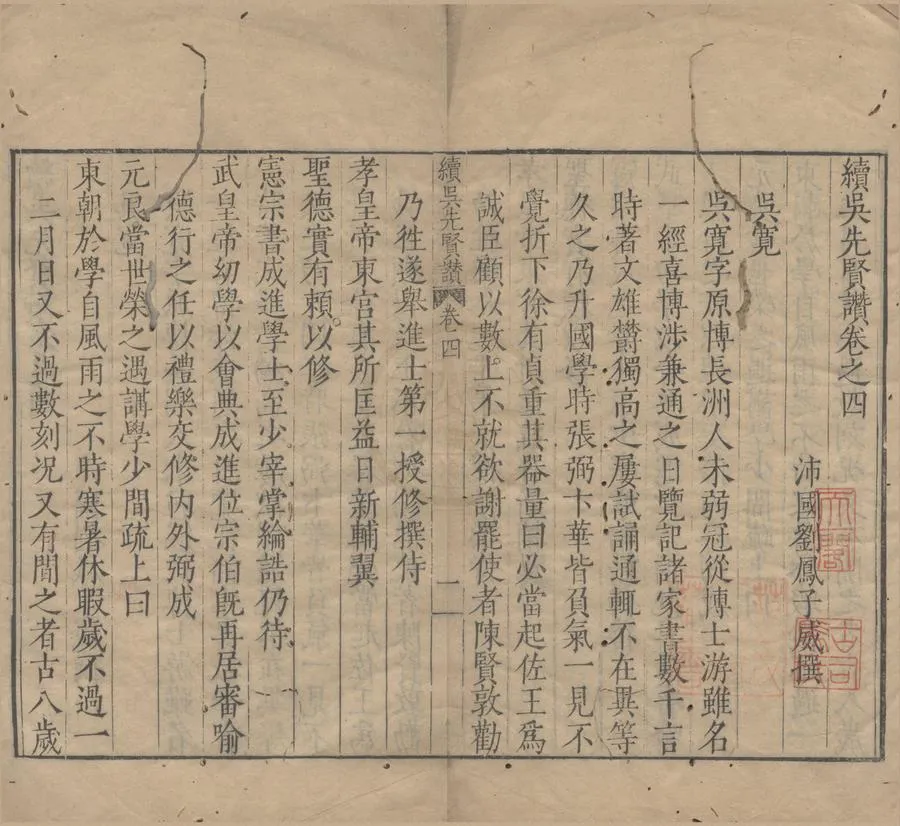 續吳先賢讃卷之四
沛國劉鳳子威撰
吳寬
吳寬字原博長洲人未弱冠從博士游雖名
一經喜博涉兼通之日覽記諸家書數千言
時著文雄欝獨高之屢試誦通輒不在異等
久之乃升國學時張弼卞華皆負氣一見不
覺折下徐有貞重其器量曰必當起佐王爲
誠臣顧以數上不就欲謝罷使者陳賢敦勸
續吳先賢讃 卷四 一
乃徃遂舉進士第一授修撰侍
孝皇帝東宮其所匡益日新輔翼
聖德實有頼以修
憲宗書成進學士至少宰掌綸誥仍待
武皇帝幼學以會典成進位宗伯旣再居審喻
德行之任以禮樂交修内外弼成
元良當世榮之遇講學少間疏上曰
東朝於學自風雨之不時寒暑休暇歲不過一
二月日又不過數刻况又有間之者古八歲